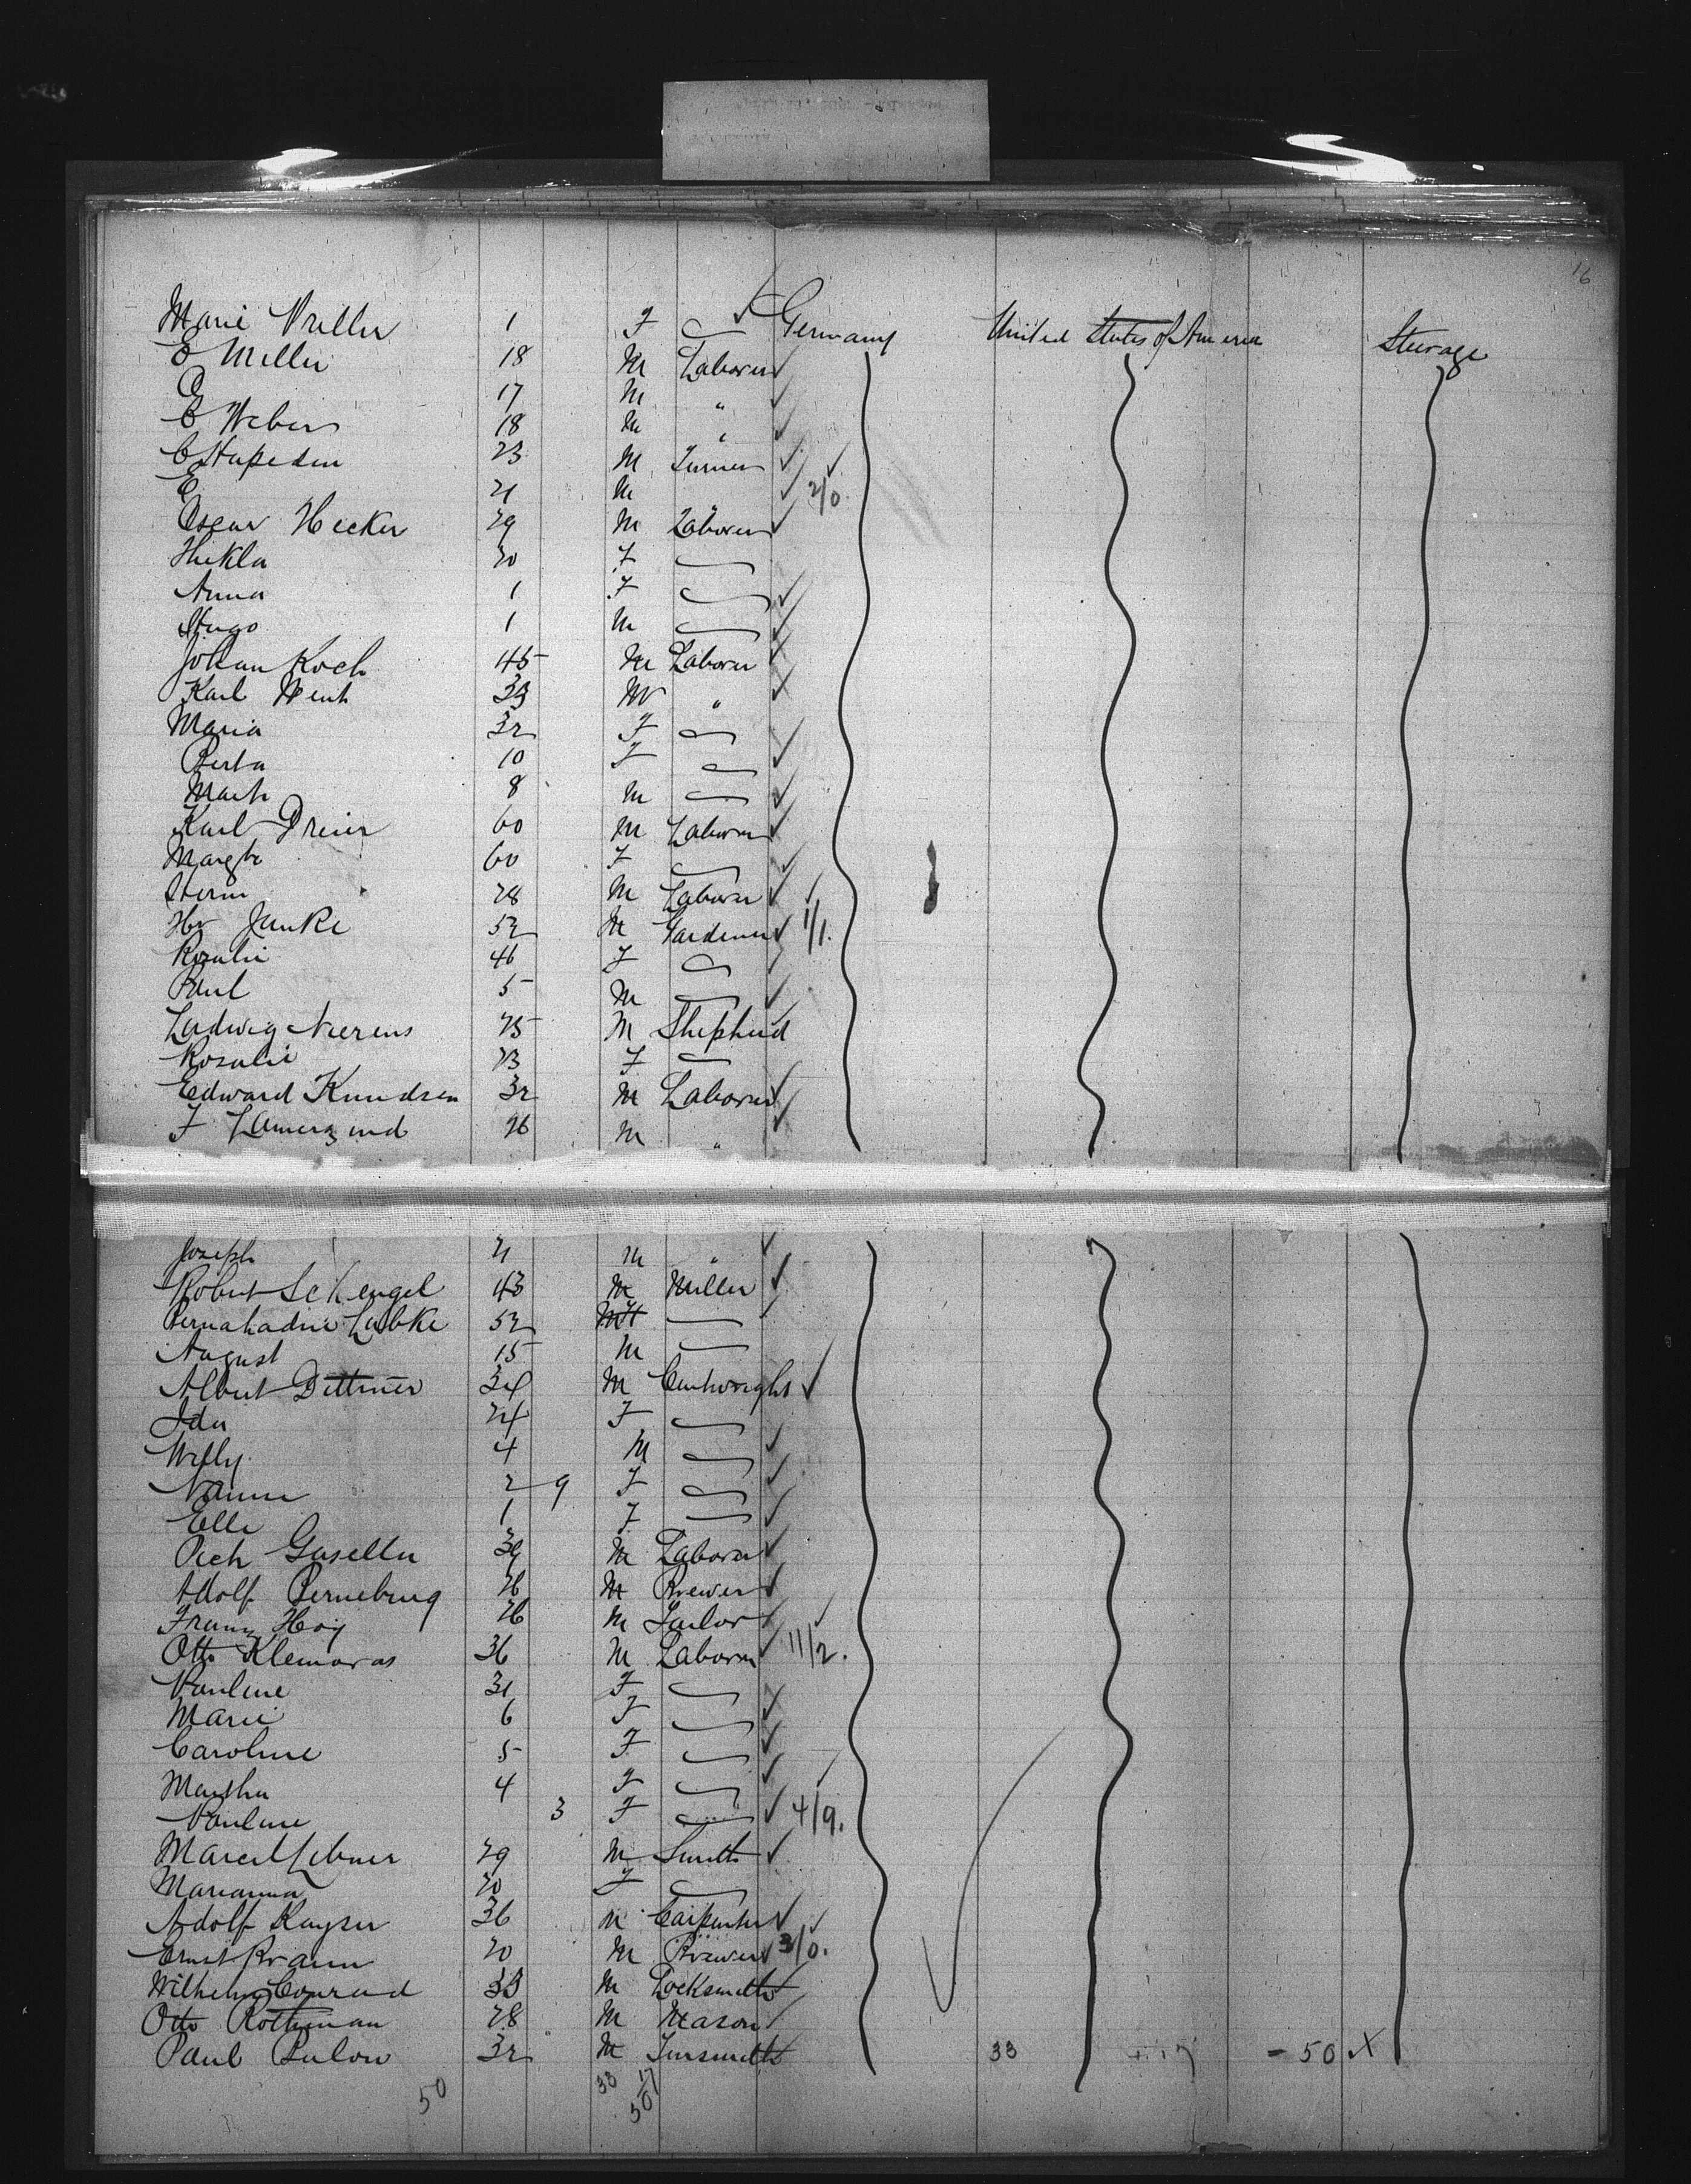 16
Marie Müller 1 F Germany United States of America Steerage
E Meller 18 M Laborer
C 17 M "
C Weber 18 M "
C Stupedin 23 M Turner
E 21 M " 2/0.
Oscar Hecker 29 M Laborer
Thekla 20 F
Anna 1 F
Hugo 1 M
Johan Koch 45 M Laborer
Karl Went 33 M "
Maria 32 F
Berta 10 F
8 M
Karl Dreier 60 M Laborer
Margte 60 F
Herm 28 M Laborer
Hr Janke 52 M Gardener 1/1.
Rosalie 46 F
Paul 5 M
Ludwig Nierens 25 M Shepherd
Rosalie 23 F
Edward Knudsen 32 M Laborer
F 26 M "
Joseph 21 M "
Robert Schengel 43 M Miller
Lubke 52
August 15 M
Albert Dittmer 34 M Cartwright
Ida 24 F
Willy 4 M
2 9 F
Elle 1 F
Gaseller 39 M Laborer
Adolf Berneburg 26 M Brewer
Franz Hoy 26 M Tailor
Otto Klemoras 36 M Laborer 11/2.
Pauline 31 F
Marie 6 F
Caroline 5 F
Martha 4 F
Pauline 3 F 4/9.
Marcel 29 M Smith
Marianna 20 F
Adolf Kayser 36 M Carpenter
Ernst Braun 20 M Brewer 3/0.
Wilhelm Conrad 33 M Locksmith
Otto Rothman 28 M Mason
Paul Bulow 32 M Tinsmith 33 + 17 = 50 X
50 33 17
50